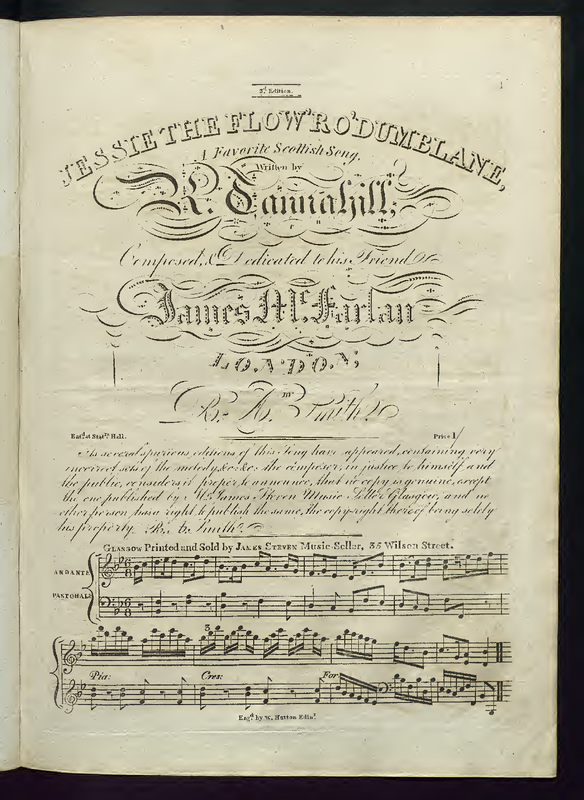 3.d Edition.
JESSIE THE FLOW'R O' DUMBLANE,
A Favorite Scottish Song.
Written by
R. Tannahill;
Composed, & Dedicated to his Friend
James Mc. Farlan
LONDON;
BY
R. A. Smith.
Ent.d at Stat.rs Hall.
Price 1/
As several spurious editions of this Song have appeared, containing very
incorrect sets of the melody &c. &c. the composer, in justice to himself and
the public, considers it proper to announce, that no copy is genuine, except
the one published by Mr. James Steven Music Seller Glasgow, and no
other person has a right to publish the same, the copy-right thereof being solely
his property. R. A. Smith.
GLASGOW Printed and Sold by JAMES STEVEN Music-Seller, 35 Wilson Street.
ANDANTE
PASTORALE
3
Pia: Cres: For
Eng.d by W. Hutton Edin.r